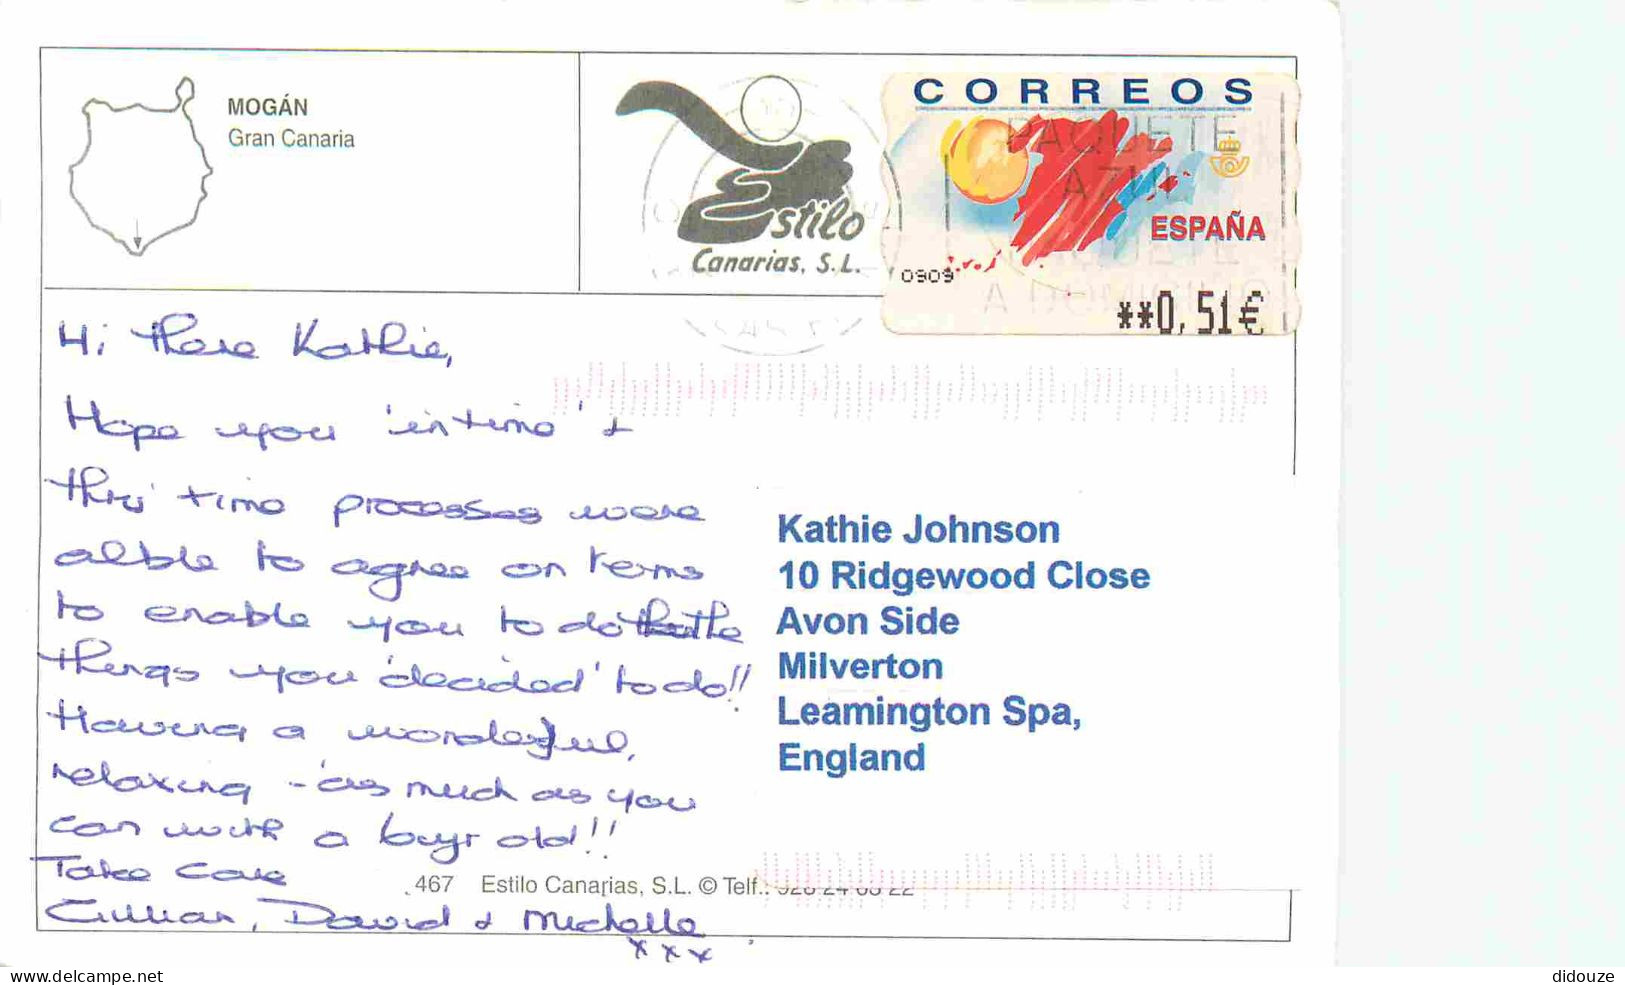 MOGÁN
Gran Canaria
Estilo
Canarias, S.L.
CORREOS
PAQUETE
AZUL
ESPAÑA
0909
**0,51€
Hi there Kathie,
Hope you 'in time' &
this' time processes were
alble to agree on terms
to enable you to do the
things you 'decided' to do!!
Having a wonderful,
relaxing - 'as much as you
can with a 6uyr old!!
Take Care
Gillian, David & Michelle
xxx
Kathie Johnson
10 Ridgewood Close
Avon Side
Milverton
Leamington Spa,
England
467 Estilo Canarias, S.L. © Telf.:
www.delcampe.net
didouze